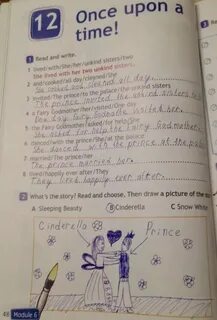 12 Once upon a
time!
1 Read and write.
1 lived/with/She/her/unkind sisters/two
She lived with her two unkind sisters.
2 and/cooked/all day/cleaned/She
She cooked and cleaned all day.
3 invited/The prince/to the palace/the unkind sisters
The prince invited the unkind sisters to
4 a Fairy Godmother/her/visited/One day
One day Fairy Godmother visited her.
5 the Fairy Godmother
She for help the Fairy Godmother
6 danced/with the prince/She/at the palace
She danced with the prince at the pala
7 married/The prince/her
The prince married her.
8 lived/happily ever after/They
They lived happily ever after.
2 What's the story? Read and choose. Then draw a picture of the
A Sleeping Beauty B Cinderella C Snow White
Cinderella Prince
48 Module 6